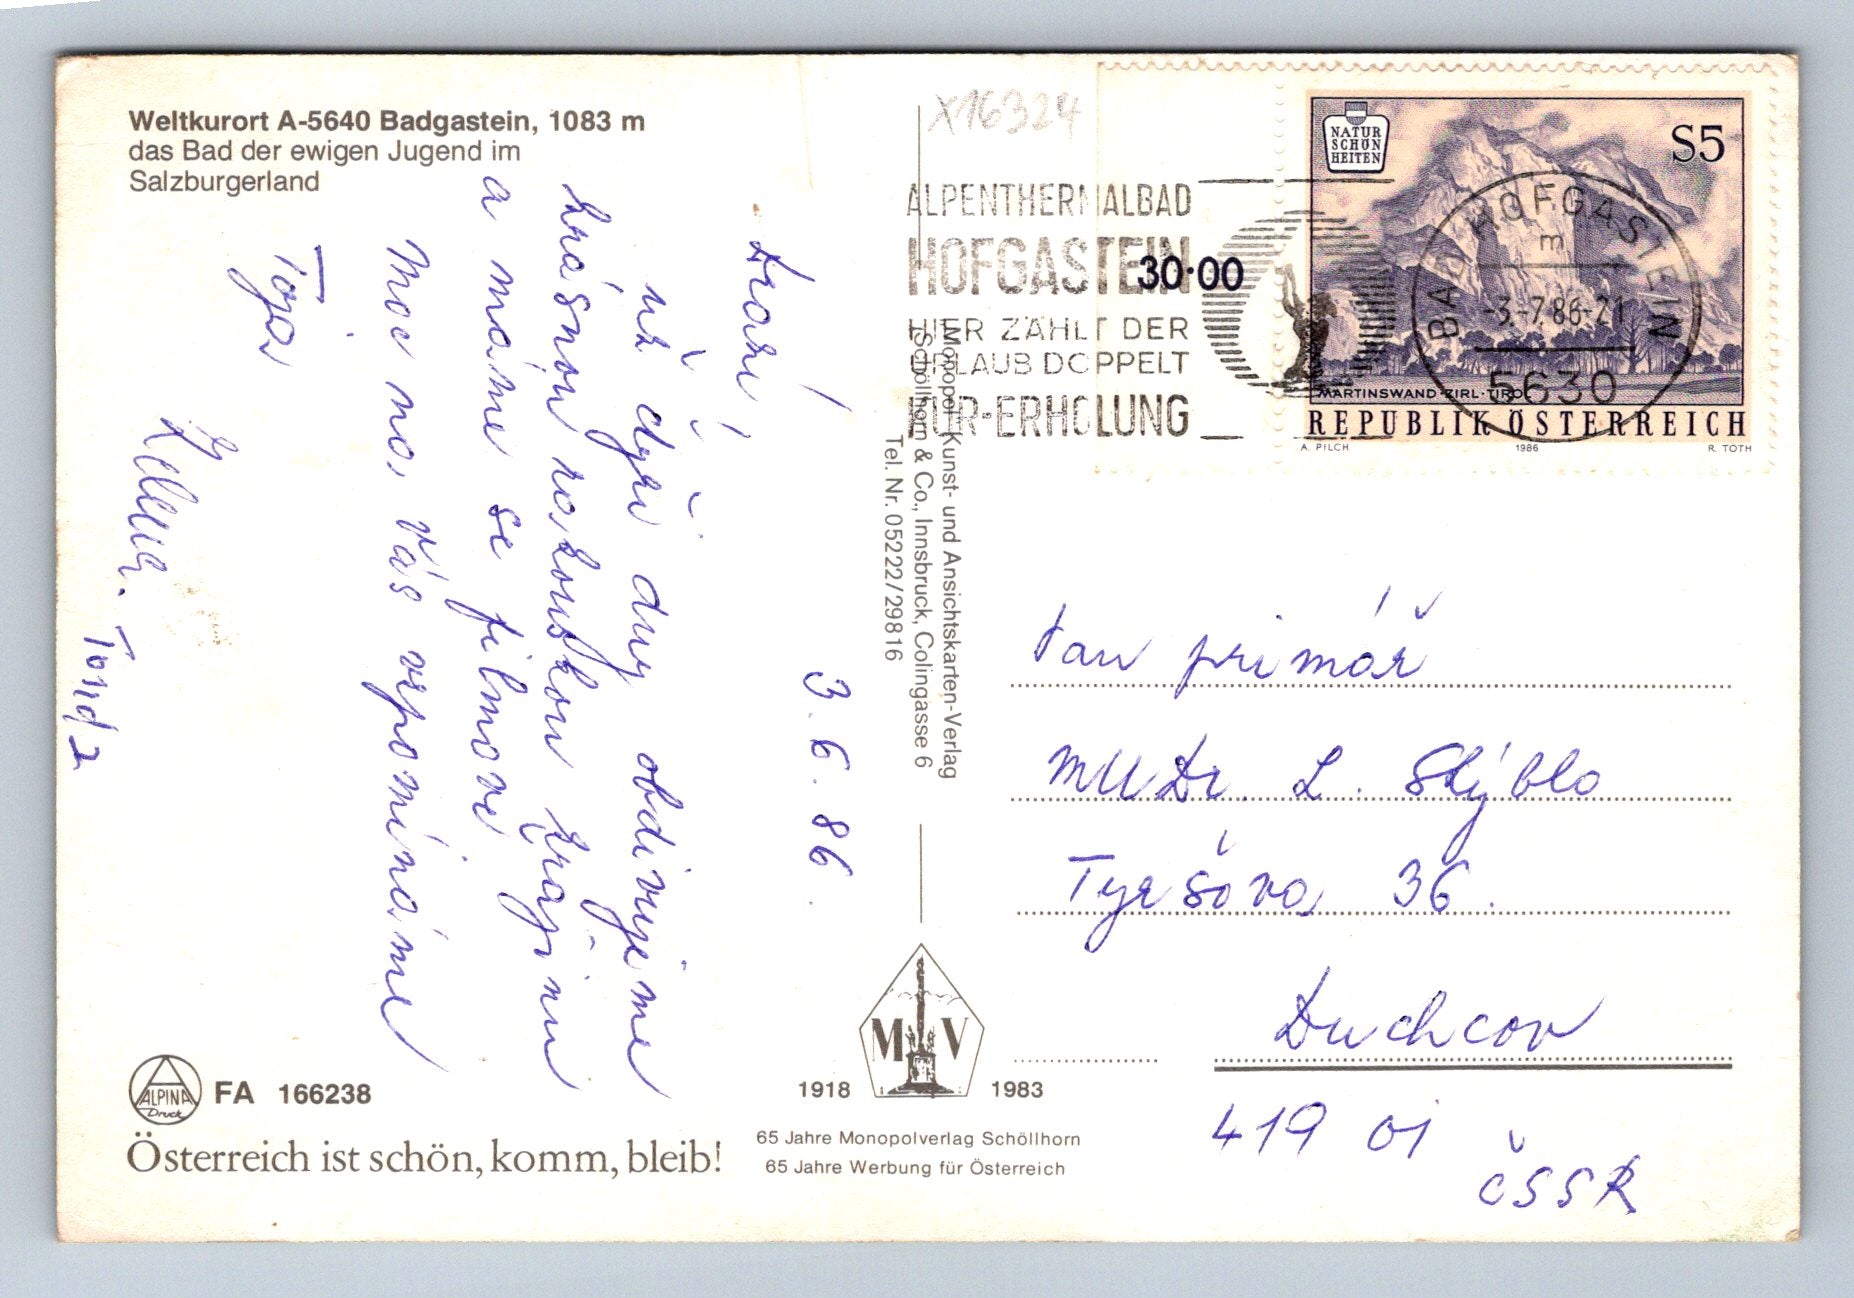 Weltkurort A-5640 Badgastein, 1083 m
das Bad der ewigen Jugend im
Salzburgerland
3. 6. 86.
Drazí!
už čtyři dny obdivujeme
krásnou rakouskou krajinu
a máme se filmově.
Moc na Vás vzpomínáme
Toja
Helena.
Tonda
X16324
ALPENTHERMALBAD
HOFGASTEIN
HIER ZÄHLT DER
URLAUB DOPPELT
KUR-ERHOLUNG
30·00
NATUR
SCHÖN
HEITEN
S5
BAD HOFGASTEIN
m
-3.-7.86-21
5630
MARTINSWAND·ZIRL·TIROL
REPUBLIK ÖSTERREICH
A. PILCH 1986 R. TOTH
Monopol-Kunst- und Ansichtskarten-Verlag
Schöllhorn & Co., Innsbruck, Colingasse 6
Tel. Nr. 05222/29816
Pan primář
MUDr. L. Stýblo
Tyršova 36.
Duchcov
419 01
ČSSR
ALPINA
Druck
FA 166238
Österreich ist schön, komm, bleib!
M V
1918 1983
65 Jahre Monopolverlag Schöllhorn
65 Jahre Werbung für Österreich